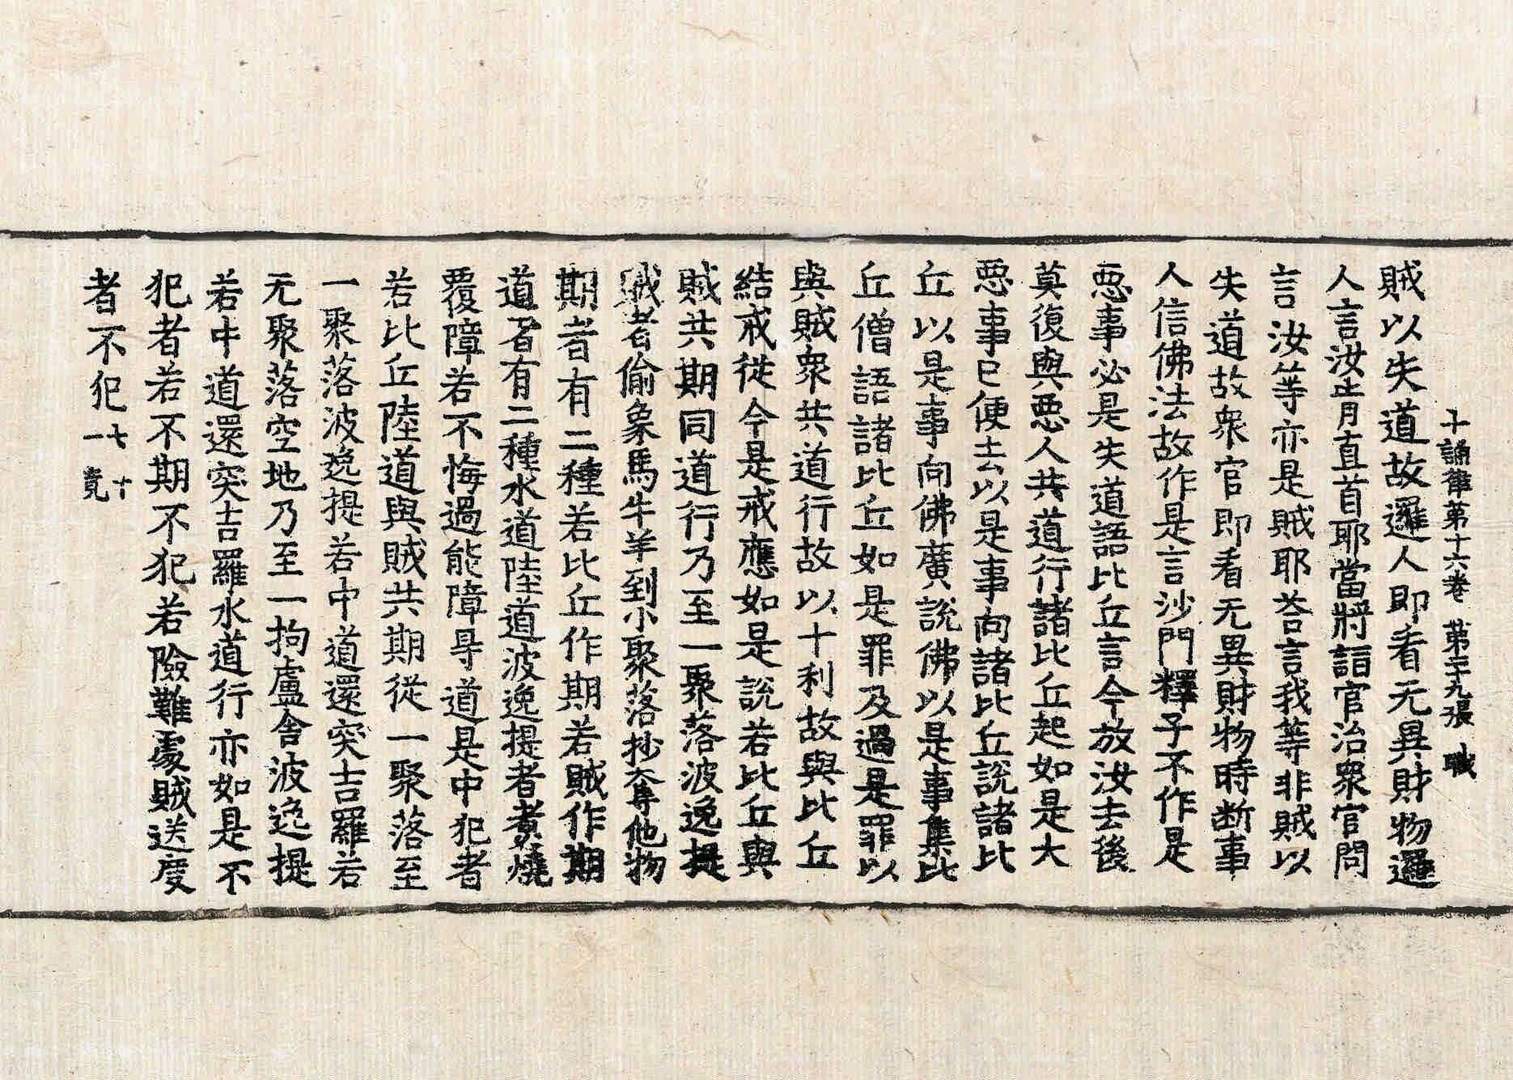 十誦律第十六卷 第三十九張 職
賊以失道故邏人即看无異財物邏
人言汝等首直首耶當將詣官治衆官問
言汝等亦是賊耶荅言我等非賊以
失道故衆官即看无異財物時断事
人信佛法故作是言沙門釋子不作是
惡事必是失道語比丘言今放汝去後
莫復與惡人共道行諸比丘起如是大
惡事已便去以是事向諸比丘說諸比
丘以是事向佛廣說佛以是事集比
丘僧語諸比丘如是罪及過是罪以
與賊衆共道行故以十利故與比丘
結戒從今是戒應如是說若比丘與
賊共期同道行乃至一聚落波逸提
賊者偷象馬牛羊到小聚落抄奪他物
期者有二種若比丘作期若賊作期
道者有二種水道陸道波逸提者煮燒
覆障若不悔過能障㝵道是中犯者
若比丘陸道與賊共期從一聚落至
一聚落波逸提若中道還突吉羅若
无聚落空地乃至一拘盧舍波逸提
若中道還突吉羅水道行亦如是不
犯者若不期不犯若險難處賊送度
者不犯七十一竟